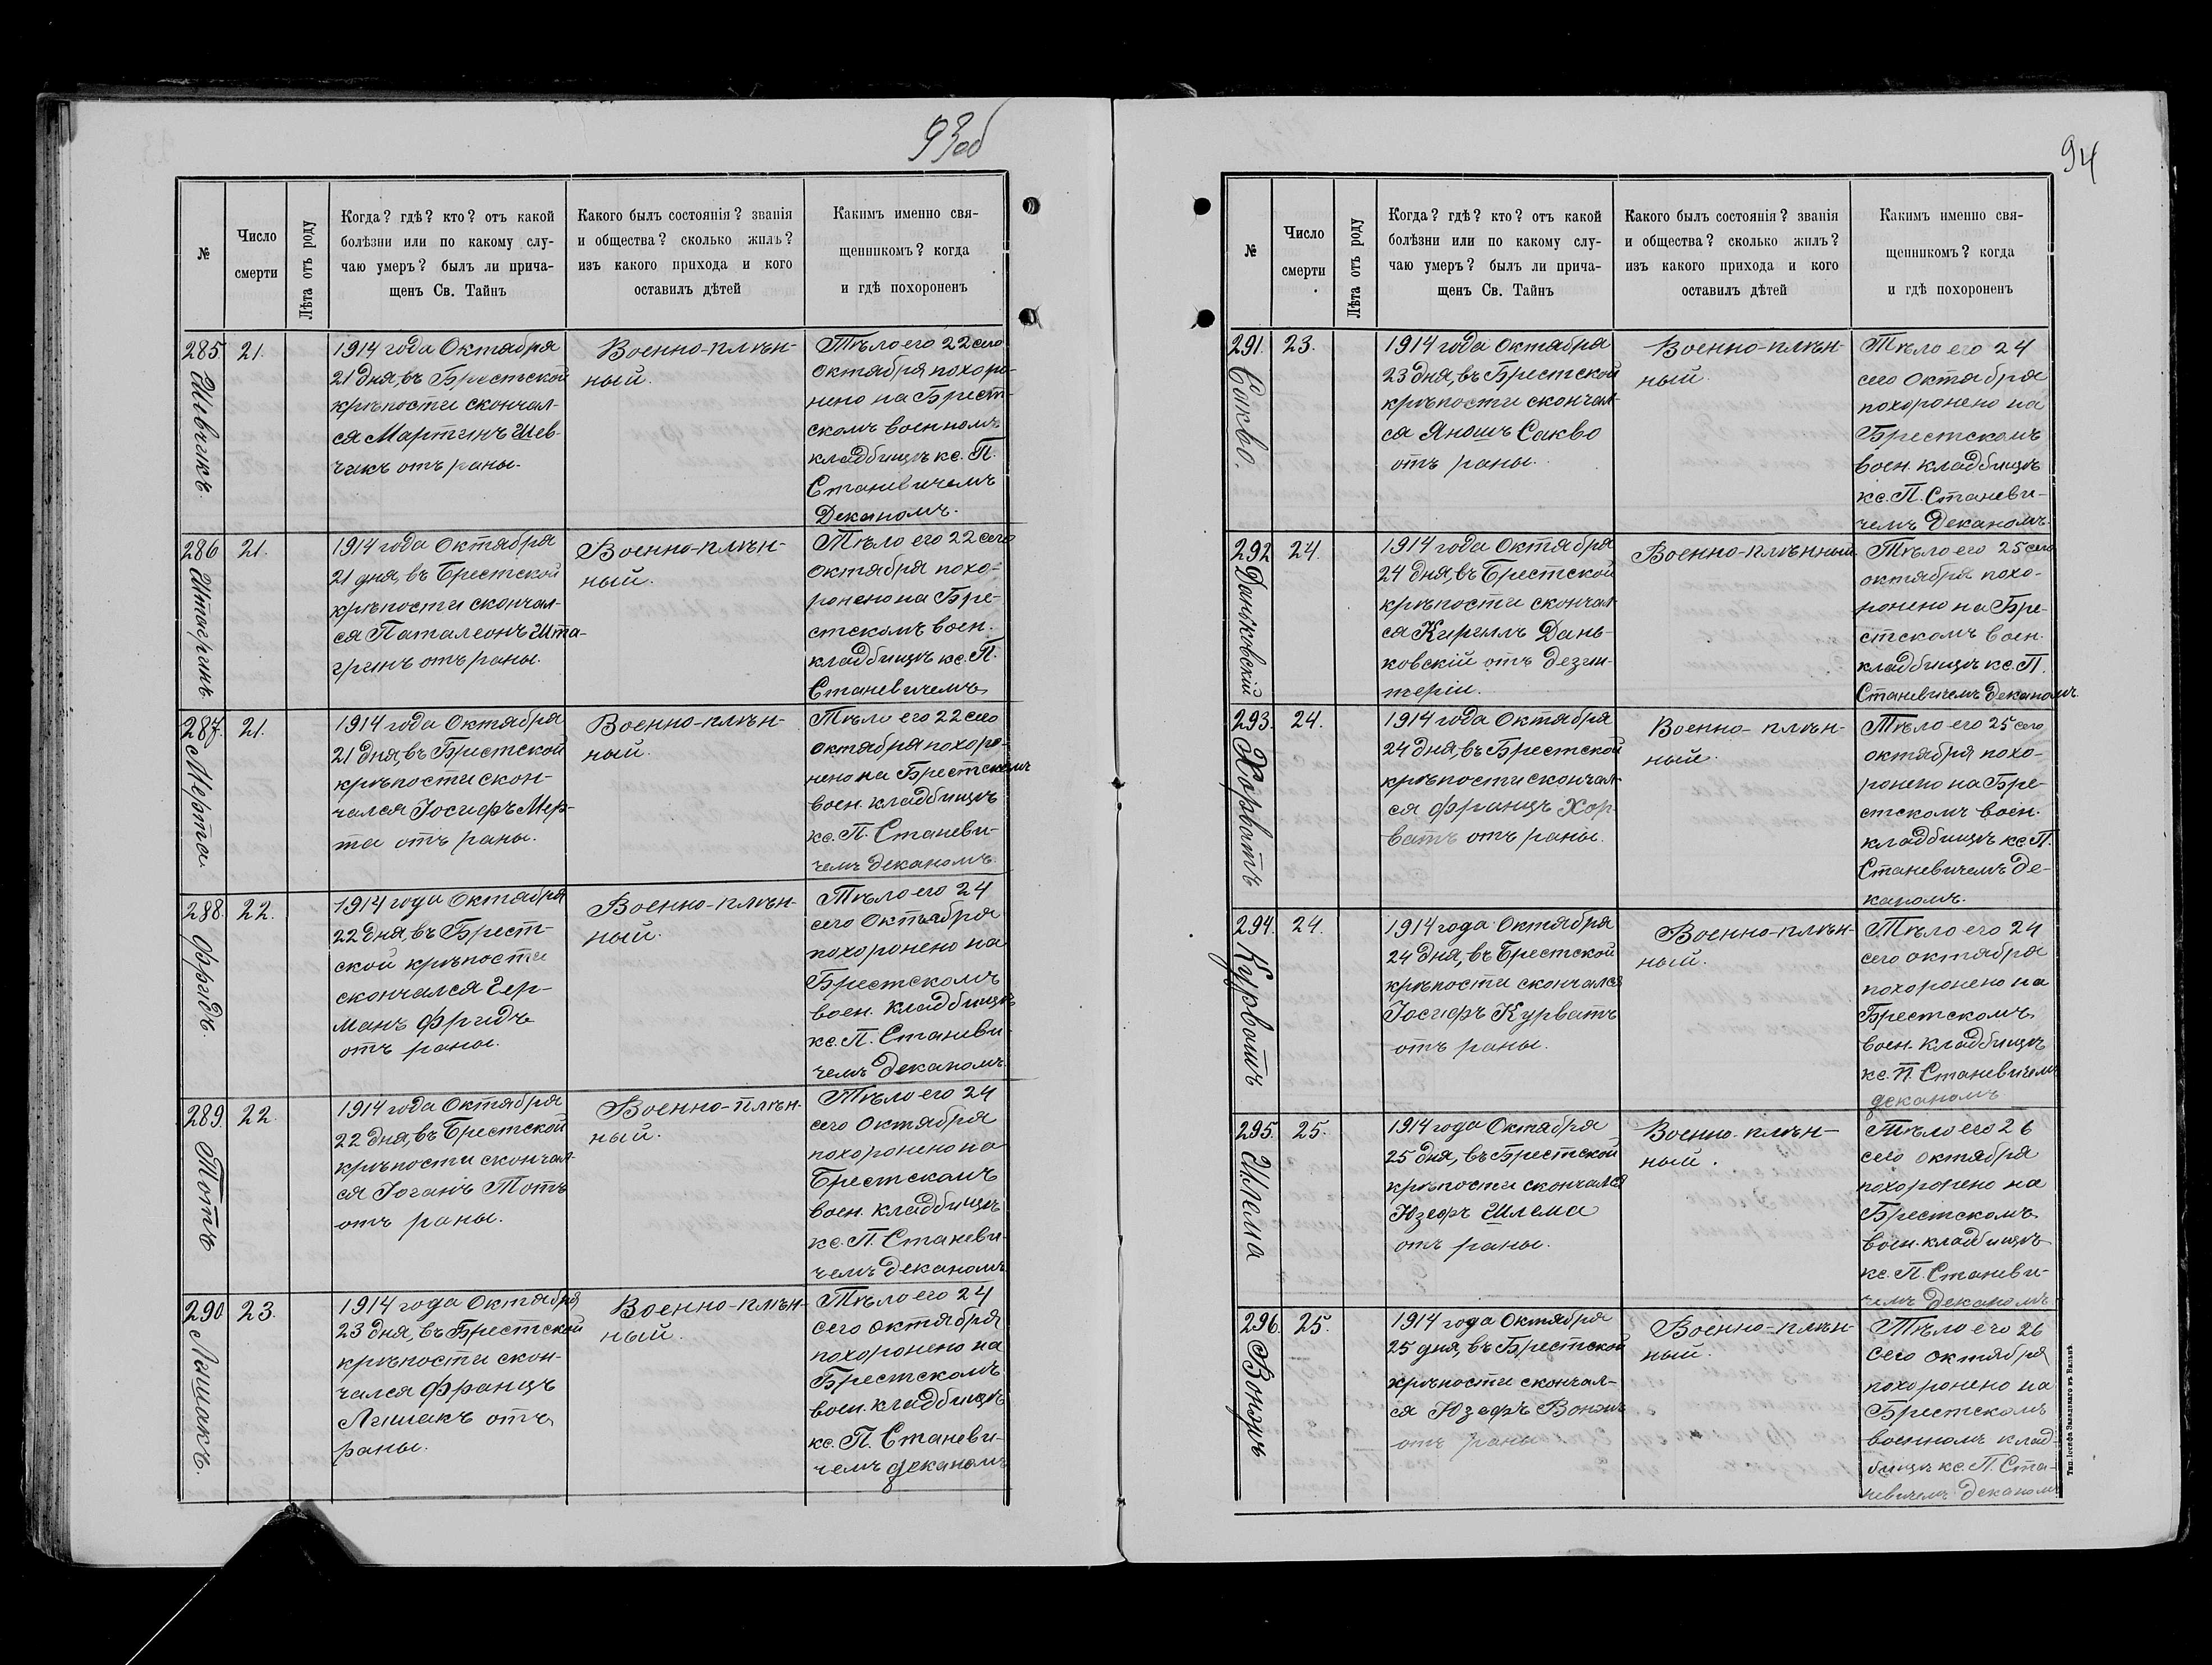 93об
№
Число
смерти
Лѣта отъ роду
Когда? гдѣ? кто? отъ какой
болѣзни или по какому слу-
чаю умеръ? былъ ли прича-
щенъ Св. Тайнъ
Какого былъ состоянія? званія
и общества? сколько жилъ?
изъ какого прихода и кого
оставилъ дѣтей
Какимъ именно свя-
щенникомъ? когда
и гдѣ похороненъ
285.
Шевчикъ.
21.
1914 года Октября
21 дня, въ Брестской
крѣпости скончал-
ся Мартинъ Шев-
чикъ отъ раны.
Военно-плѣн-
ный.
Тѣло его 22 сего
Октября похоро-
нено на Брест-
скомъ военномъ
кладбищѣ кс. П.
Станевичемъ
Деканомъ.
286
Штагринъ
21.
1914 года Октября
21 дня, въ Брестской
крѣпости скончал-
ся Паталеонъ Шта-
гринъ отъ раны.
Военно-плѣн-
ный.
Тѣло его 22 сего
Октября похо-
ронено на Бре-
стскомъ воен.
кладбищѣ кс. П.
Станевичемъ
287.
Мерта.
21.
1914 года Октября
21 дня, въ Брестской
крѣпости скон-
чался Іосифъ Мер-
та отъ раны.
Военно-плѣн-
ный.
Тѣло его 22 сего
октября похоро-
нено на Брестскомъ
воен. кладбищѣ
кс. П. Станеви-
чемъ деканомъ.
288.
Фридъ.
22.
1914 года Октября
22 дня, въ Брест-
ской крѣпости
скончался Гер-
манъ Фридъ
отъ раны.
Военно-плѣн-
ный.
Тѣло его 24
сего Октября
похоронено на
Брестскомъ
воен. кладбищѣ
кс. П. Станеви-
чемъ Деканомъ.
289.
Тотъ
22.
1914 года Октября
22 дня, въ Брестской
крѣпости скончал-
ся Іоганъ Тотъ
отъ раны.
Военно-плѣн-
ный.
Тѣло его 24
сего Октября
похоронено на
Брестскомъ
воен. кладбищѣ
кс. П. Станеви-
чемъ деканомъ
290
Лишакъ.
23.
1914 года Октября
23 дня, въ Брестской
крѣпости скон-
чался Францъ
Лишакъ отъ
раны.
Военно-плѣн-
ный.
Тѣло его 24
сего октября
похоронено на
Брестскомъ
воен. кладбищѣ
кс. П. Станеви-
чемъ деканомъ
94
№
Число
смерти
Лѣта отъ роду
Когда? гдѣ? кто? отъ какой
болѣзни или по какому слу-
чаю умеръ? былъ ли прича-
щенъ Св. Тайнъ
Какого былъ состоянія? званія
и общества? сколько жилъ?
изъ какого прихода и кого
оставилъ дѣтей
Какимъ именно свя-
щенникомъ? когда
и гдѣ похороненъ
291.
Сакво.
23.
1914 года Октября
23 дня, въ Брестской
крѣпости скончал-
ся Яношъ Сакво
отъ раны.
Военно-плѣн-
ный.
Тѣло его 24
сего Октября
похоронено на
Брестскомъ
воен. кладбищѣ
кс. П. Станеви-
чемъ Деканомъ.
292
Даньковскій
24.
1914 года Октября
24 дня, въ Брестской
крѣпости скончал-
ся Кириллъ Дань-
ковскій отъ дезин-
теріи.
Военно-плѣнный.
Тѣло его 25 сего
октября похо-
ронено на Бре-
стскомъ воен.
кладбищѣ кс. П.
Станевичемъ Деканомъ
293.
Хорватъ
24.
1914 года Октября
24 дня, въ Брестской
крѣпости скончал-
ся Францъ Хор-
ватъ отъ раны.
Военно-плѣн-
ный.
Тѣло его 25 сего
октября похо-
ронено на Бре-
стскомъ воен.
кладбищѣ кс. П.
Станевичемъ Де-
каномъ.
294.
Курватъ
24.
1914 года Октября
24 дня, въ Брестской
крѣпости скончался
Іосифъ Курватъ
отъ раны.
Военно-плѣн-
ный.
Тѣло его 24
сего октября
похоронено на
Брестскомъ
воен. кладбищѣ
кс. П. Станевичемъ
деканомъ
295.
Шлема
25.
1914 года Октября
25 дня, въ Брестской
крѣпости скончался
Юзефъ Шлема
отъ раны.
Военно-плѣн-
ный.
Тѣло его 26
сего октября
похоронено на
Брестскомъ
воен. кладбищѣ
кс. П. Станеви-
чемъ Деканомъ
296.
25.
1914 года Октября
25 дня, въ Брестской
крѣпости скончал-
ся Юзефъ
отъ раны
Военно-плѣн-
ный.
Тѣло его 26
сего октября
похоронено на
Брестскомъ
военномъ клад-
бищѣ кс. П. Ста-
невичемъ Деканомъ
Тип. Іосифа Завадзкаго въ Вильнѣ